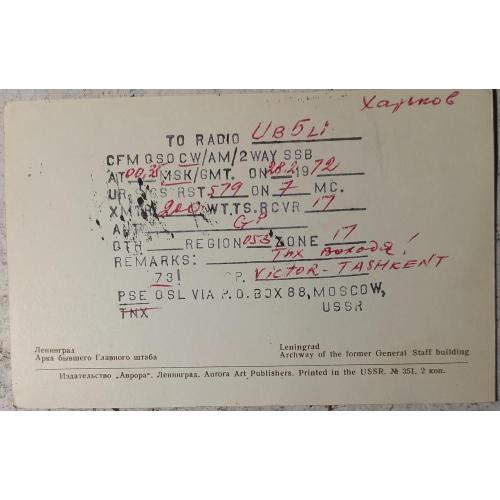 Харьков
TO RADIO UB5Li
CFM QSO CW/AM/2WAY SSB
AT 00.28 MSK/GMT. ON 28.2 1972
UR SIGS RST 579 ON 7 MC.
XMTR 200 WT.TS.RCVR 17
ANT GP
QTH REGION 053 ZONE 17
REMARKS: Tnx !
73! OP. Victor - TASHKENT
PSE QSL VIA P.O.BOX 88, MOSCOW,
TNX USSR
Ленинград
Арка бывшего Главного штаба
Leningrad
Archway of the former General Staff building
Издательство „Аврора“. Ленинград. Aurora Art Publishers. Printed in the USSR. № 351. 2 коп.